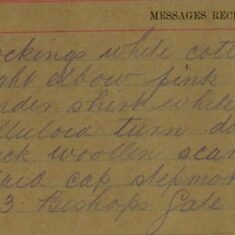 MESSAGES RECE
ockings white cott
ght elbow pink
nder shirt white
lluloid turn do
ack woollen scar
laid cap stepmot
3 Bishops Gate